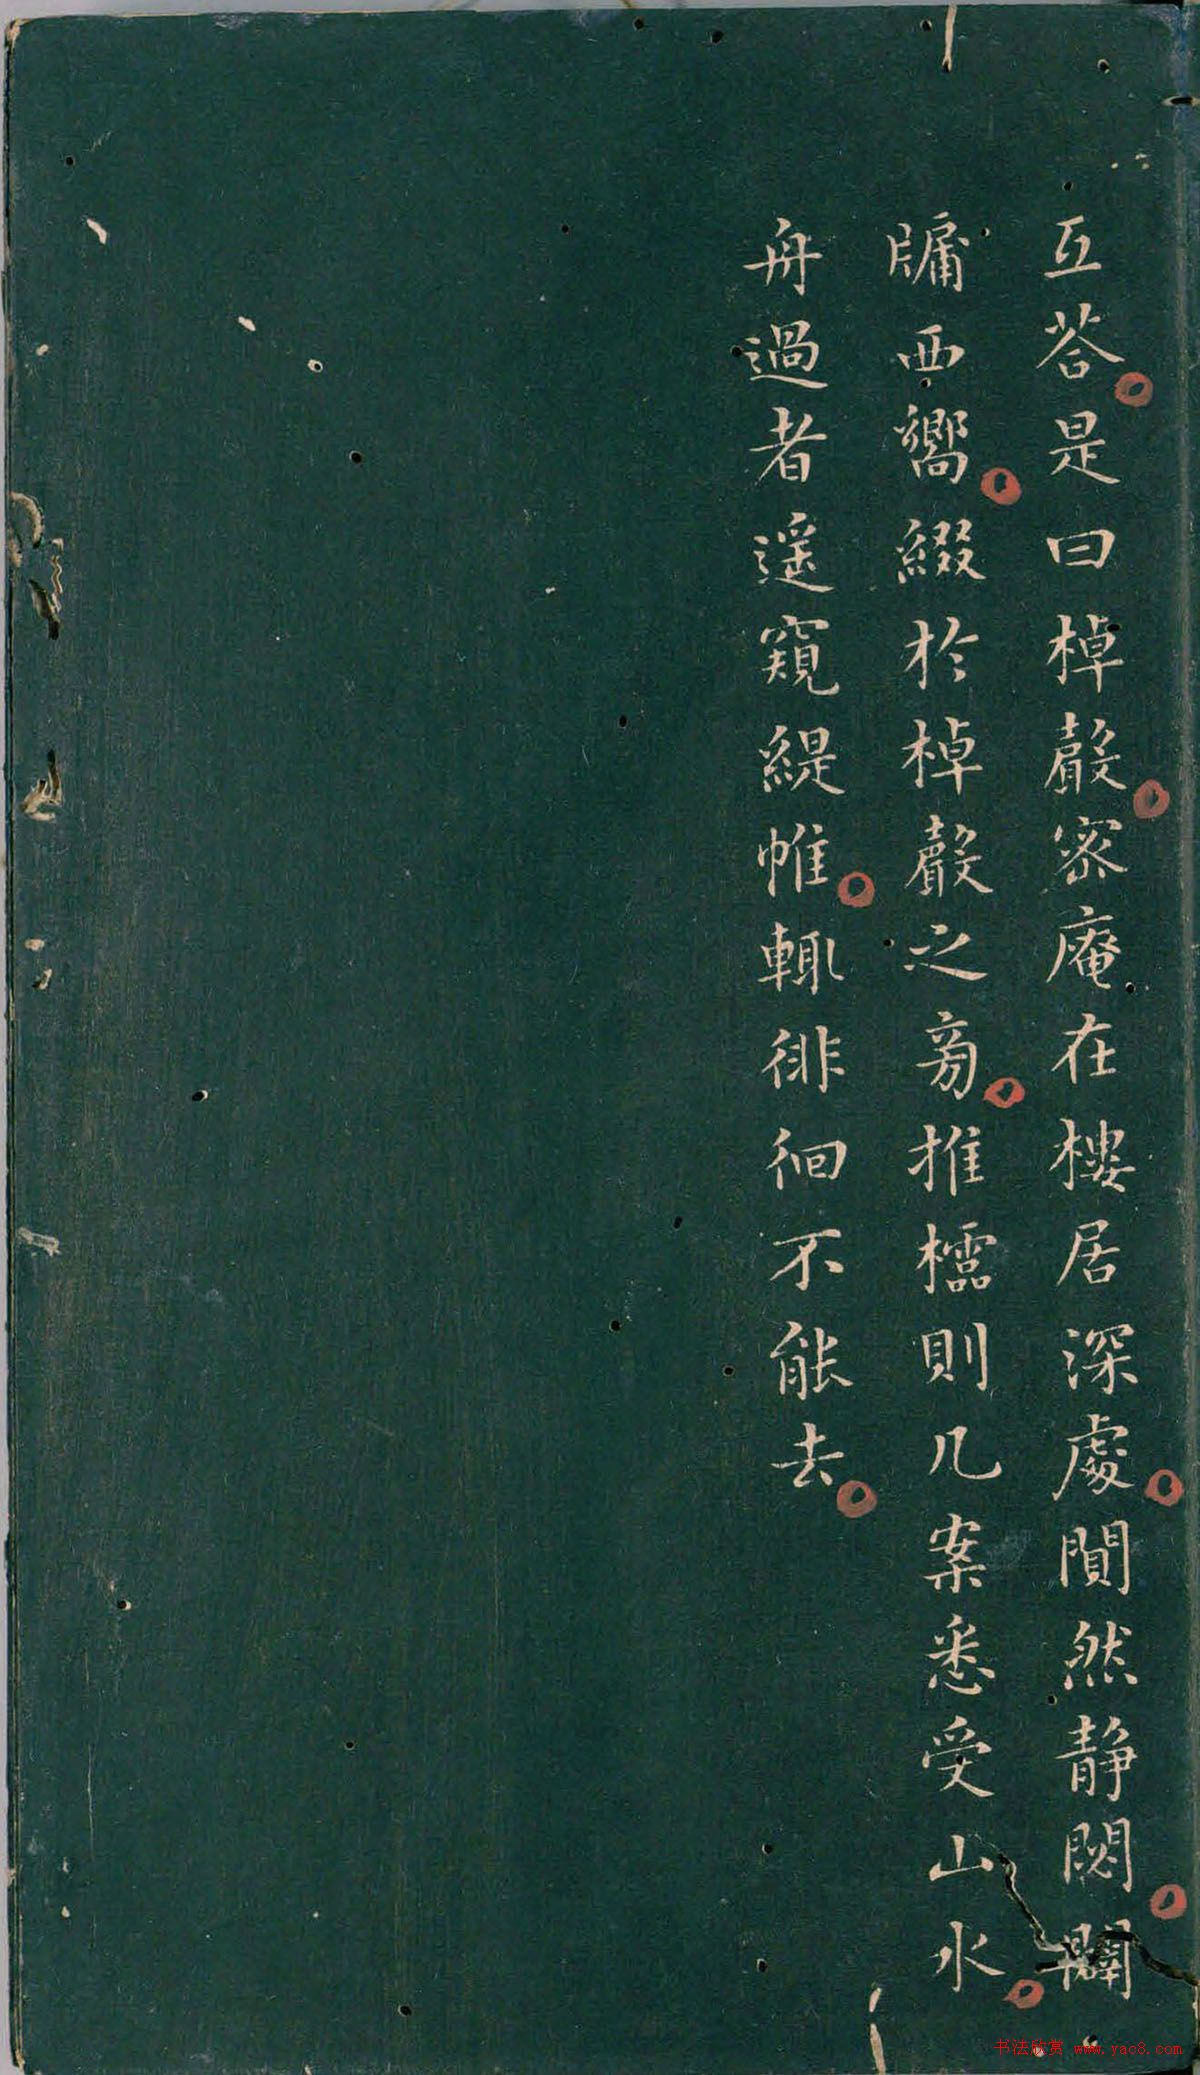 互荅是曰棹聲密庵在樓居深處闃然靜閟闢
牗西嚮綴於棹聲之旁推櫺則几案悉受山水
舟過者遥窺緹帷輙徘徊不能去
书法欣赏 www.yac8.com